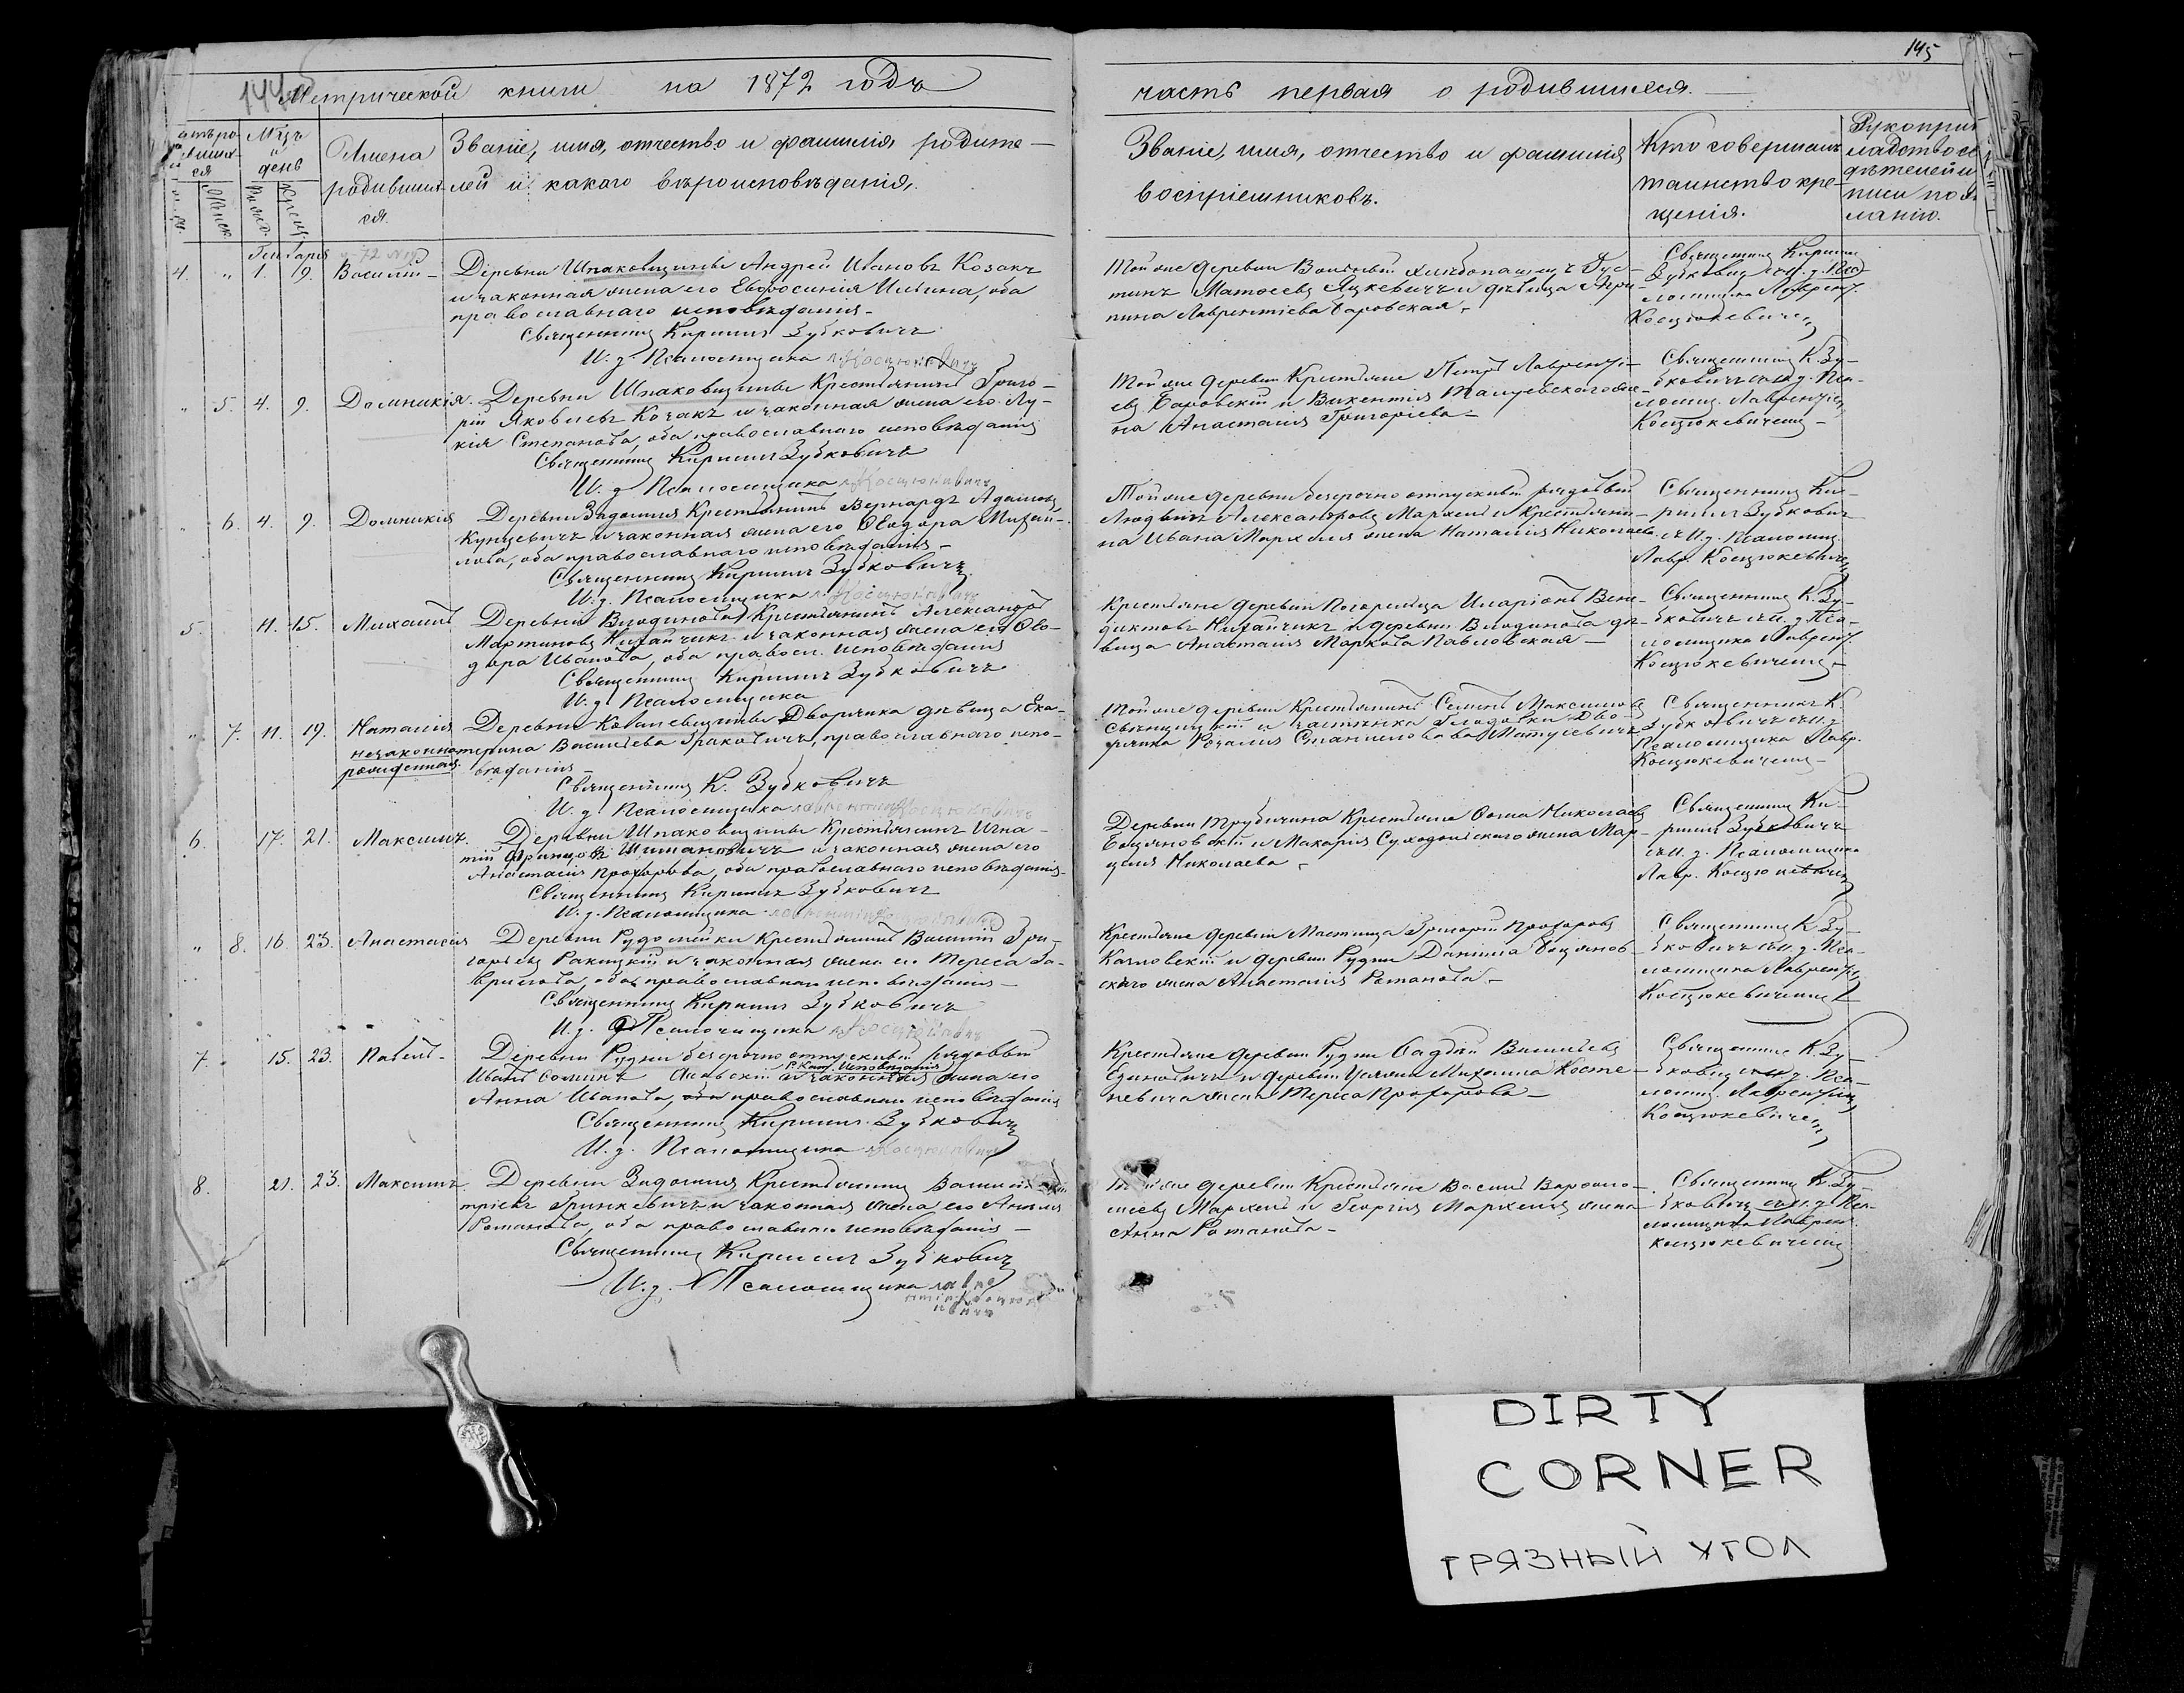 145
Метрической книги на 1872 годъ
часть первая о родившихся.
Мѣсяцъ и день
Имена родившихся.
Званіе, имя, отчество и фамилія родите-
лей и какого вѣроисповѣданія.
Званіе, имя, отчество и фамилія
воспріемниковъ.
Кто совершалъ
таинство кре-
щенія.
Генваря
4. „ 1. 9. Василій Деревни Шпаковщины Андрей Ивановъ Козакъ
и законная жена его Евфросинія Ильина, оба
православнаго исповѣданія
Священникъ Кириллъ Зубковичъ
И. д. Псаломщика Л. Косцюкевичъ
Той же деревни
тинъ Матѳеевъ Яцкевичъ и дѣвица Агри-
пина Лаврентіева Боровская
Священникъ Кириллъ
Зубковичъ съ и. д. Пса-
ломщика Лаврент.
Косцюкевичемъ
„ 5. 4. 9. Домникія. Деревни Шпаковщины Крестьянинъ Григо-
рій Яковлевъ Козакъ и законная жена его Лу-
кія Степанова, оба православнаго исповѣданія
Священникъ Кириллъ Зубковичъ
И. д. Псаломщика Л. Косцюкевичъ
Той же деревни Крестьяне Петръ Лавренті-
евъ Боровскій и Викентія
на Анастасія Григоріева
Священникъ К. Зу-
бковичъ съ и. д. Пса-
ломщ. Лаврентіемъ
Косцюкевичемъ
„ 6. 4. 9. Домникія Деревни Задомля Крестьянинъ Бернардъ Адамовъ
Кунцевичъ и законная жена его Ѳеодора Михай-
лова, оба православнаго исповѣданія
Священникъ Кириллъ Зубковичъ
И. д. Псаломщика Л. Косцюкевичъ
Той же деревни безсрочно отпускный рядовый
Людвигъ Александровъ Мархель и Крестьяни-
на Ивана Мархеля жена Наталія Николаева
Священникъ Ки-
риллъ Зубковичъ
съ И. д. Псаломщ.
Лавр. Косцюкевичемъ
5. 11. 15. Михаилъ Деревни Володинова Крестьянинъ Александръ
Мартиновъ Нихайчикъ и законная жена его Ѳео-
дора Иванова, оба правосл. исповѣданія
Священникъ Кириллъ Зубковичъ
И. д. Псаломщика
Крестьяне деревни Погорельца Иларіонъ Вене-
диктовъ Нихайчикъ и деревни Володинова дѣ-
вица Анастасія Маркова Павловская
Священникъ К. Зу-
бковичъ съ и. д. Пса-
ломщика Лаврент.
Косцюкевичемъ
„ 7. 11. 19. Наталія Деревни Ковалевщины Дворянка дѣвица Ека-
незаконно терина Васильева Браковичъ, православнаго испо-
рожденная. вѣданія
Священникъ К. Зубковичъ
И. д. Псаломщика Лаврентій Косцюкевичъ
Той же деревни Крестьянинъ Семенъ Максимовъ
дво-
рянка Розалія Станиславова Матусевичъ
Священникъ К.
Зубковичъ съ и. д.
Псаломщика Лавр.
Косцюкевичемъ
6. 17. 21. Максимъ. Деревни Шпаковщины Крестьянинъ Игна-
тій Францовъ Шимановичъ и законная жена его
Анастасія Прохорова, оба православнаго исповѣданія
Священникъ Кириллъ Зубковичъ
И. д. Псаломщика Лаврентій Косцюкевичъ
Деревни Трубчина Крестьяне Ѳома Николаевъ
Боцяновскій и Макарія Суходольскаго жена Мар-
целя Николаева
Священникъ Ки-
риллъ Зубковичъ
съ И. д. Псаломщика
Лавр. Косцюкевичемъ
„ 8. 16. 23. Анастасія Деревни Рудомейки Крестьянинъ Василій Гри-
горьевъ Ракицкій и законная жена его Тереса Га-
врилова, оба православнаго исповѣданія
Священникъ Кириллъ Зубковичъ
И. д. Псаломщика Л. Косцюкевичъ
Крестьяне деревни Мостища Григорій Прохоровъ
Козловскій и деревни Рудни Даніила Боцянов-
скаго жена Анастасія Романова
Священникъ К. Зу-
бковичъ съ и. д. Пса-
ломщика Лаврентіемъ
Косцюкевичемъ
7. 15. 23. Павелъ Деревни Рудни безсрочно отпускный рядовый
Р. Кат. Исповѣданія
Иванъ Ѳоминъ и законная жена его
Анна Иванова, православнаго исповѣданія
Священникъ Кириллъ Зубковичъ
И. д. Псаломщика Л. Косцюкевичъ
Крестьяне деревни Рудни Ѳаддей Васильевъ
и деревни Михаила Косте-
невича жена Тереса Прохорова
Священникъ К. Зу-
бковичъ съ и. д. Пса-
ломщ. Лаврентіемъ
Косцюкевичемъ
8. 21. 23. Максимъ. Деревни Задомля Крестьянинъ Василій
тріевъ Гринкевичъ и законная жена его Анна
Романова, оба православнаго исповѣданія
Священникъ Кириллъ Зубковичъ
И. д. Псаломщика Лаврентій Косцюкевичъ
Той же деревни Крестьяне Василій Варѳоло-
меевъ Мархель и Георгія Мархеля жена
Анна Романова
Священникъ К. Зу-
бковичъ съ и. д. Пса-
ломщика Лаврент.
Косцюкевичемъ
DIRTY
CORNER
ГРЯЗНЫЙ УГОЛ